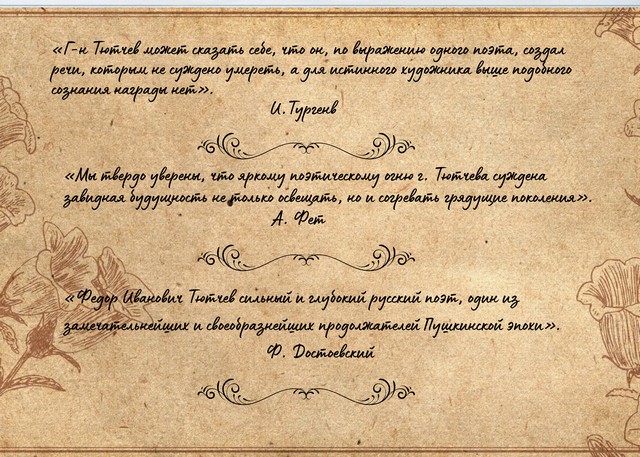 «Г-н Тютчев может сказать себе, что он, по выражению одного поэта, создал
речи, которым не суждено умереть, а для истинного художника выше подобного
сознания награды нет».
И.Тургенв
«Мы твердо уверены, что яркому поэтическому огню г. Тютчева суждена
завидная будущность не только освещать, но и согревать грядущие поколения».
А. Фет
«Федор Иванович Тютчев сильный и глубокий русский поэт, один из
замечательнейших и своеобразнейших продолжателей Пушкинской эпохи».
Ф. Достоевский